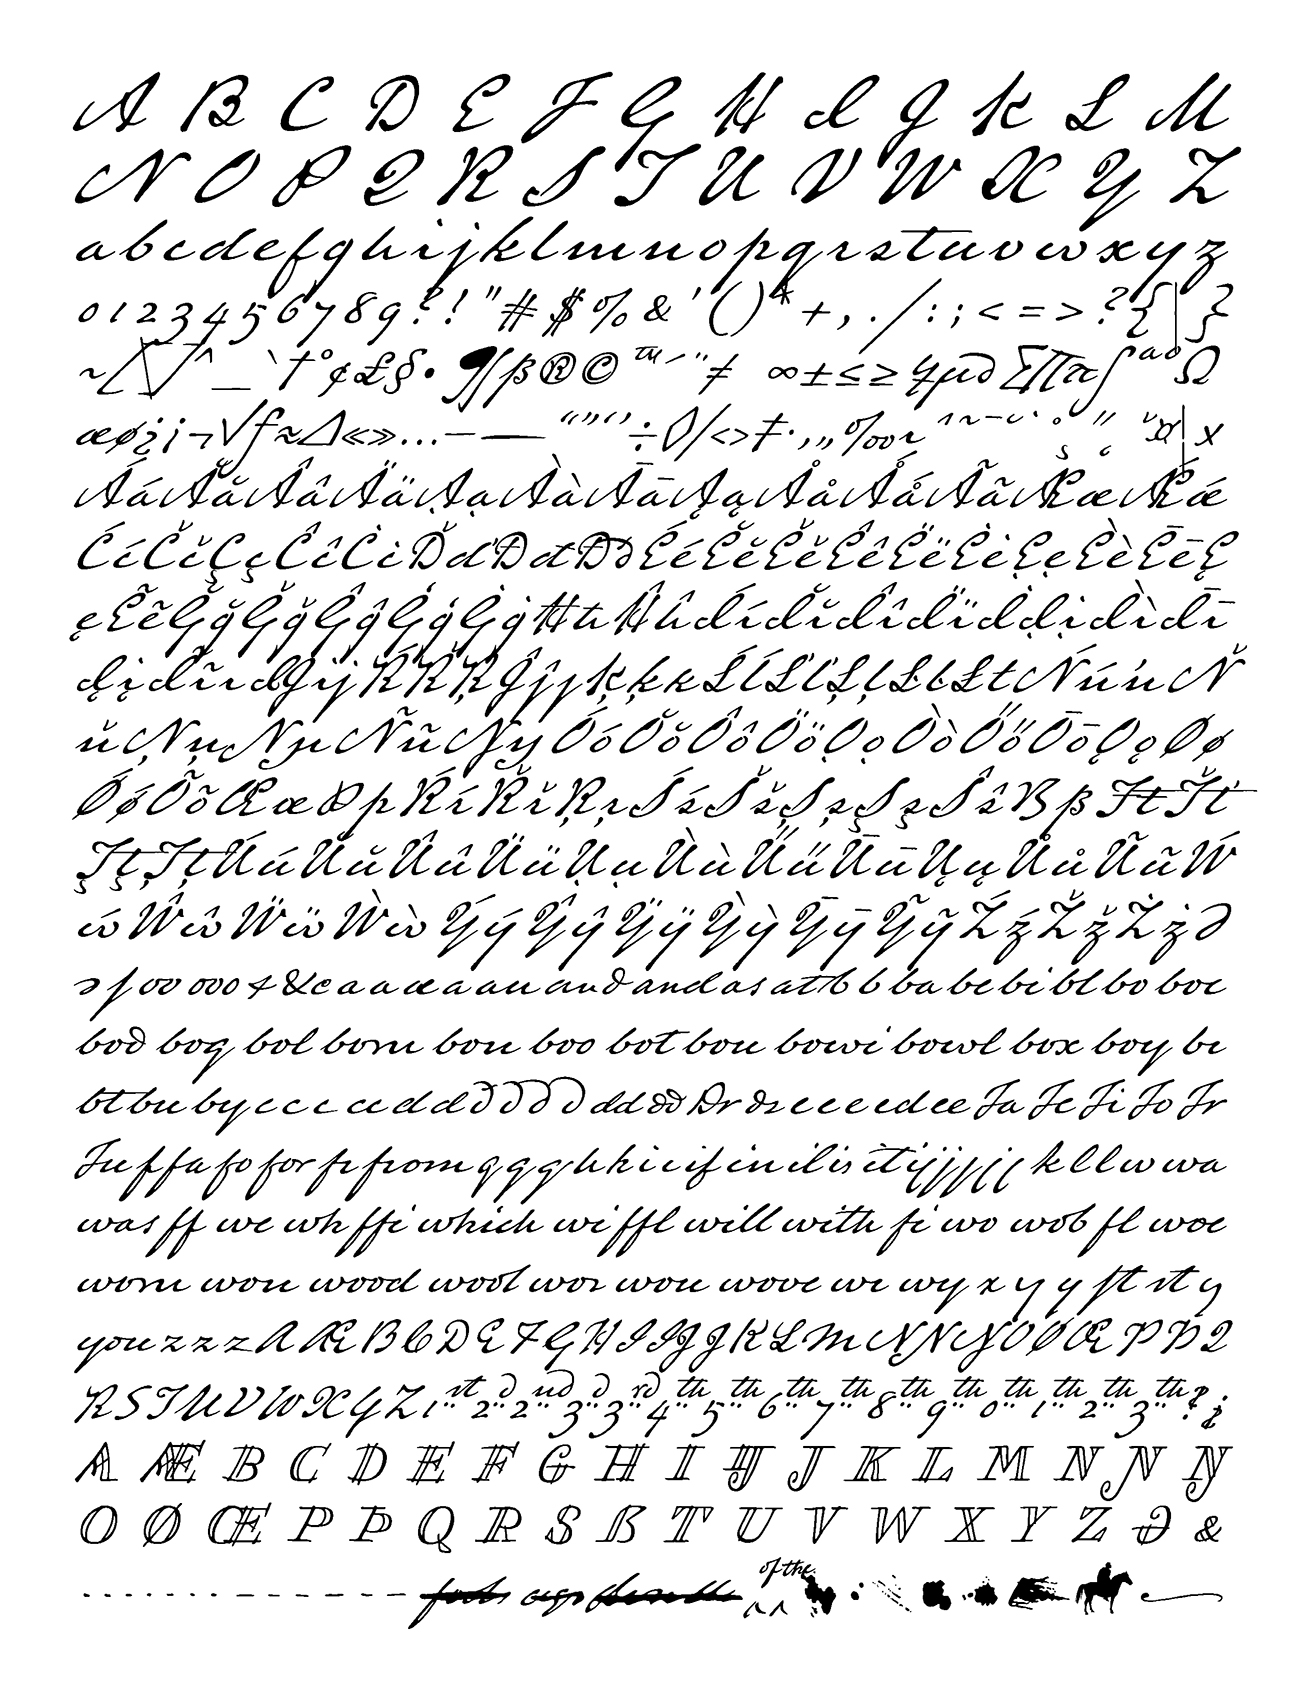 A B C D E F G H I J K L M
N O P Q R S T U V W X Y Z
a b c d e f g h i j k l m n o p q r s t u v w x y z
0 1 2 3 4 5 6 7 8 9 ? ! " # $ % & ' ( ) * + , . / : ; < = > ? { | }
~ [ \ ] ^ _ ` † ° ¢ £ § • ¶ ß ® © ™ ´ ¨ ≠ ∞ ± ≤ ≥ ¥ µ ∂ ∑ ∏ π ∫ ª º Ω
æ ø ¿ ¡ ¬ √ ƒ ≈ ∆ « » … – — “ ” ‘ ’ ÷ ◊ / < > ‡ · ‚ „ ‰ ı ˆ ˜ ¯ ˘ ˙ ˚ ¸ ˝ ˛ ˇ ¤ ¦ ×
Á á Ă ă Â â Ä ä Ạ ạ À à Ā ā Ą ą Å å Ǻ ǻ Ã ã Æ æ Ǽ ǽ
Ć ć Č č Ç ç Ĉ ĉ Ċ ċ Ď ď Đ đ Ð ð É é Ĕ ĕ Ě ě Ê ê Ë ë Ė ė Ẹ ẹ È è Ē ē Ę
ę Ẽ ẽ Ğ ğ Ǧ ǧ Ĝ ĝ Ģ ģ Ġ ġ Ħ ħ Ĥ ĥ Í í Ĭ ĭ Î î Ï ï İ Ị ị Ì ì Ī ī
Į į Ĩ ĩ ı Ĳ ĳ Ŕ Ř Ŗ Ĵ ĵ ȷ Ķ ķ ĸ Ĺ ĺ Ľ ľ Ļ ļ Ŀ ŀ Ł ł Ń ń ŉ Ň
ň Ņ ņ Ŋ ŋ Ñ ñ Ó ó Ŏ ŏ Ô ô Ö ö Ọ ọ Ò ò Ő ő Ō ō Ǫ ǫ Ø ø
Ǿ ǿ Õ õ Œ œ Þ þ Ŕ ŕ Ř ř Ŗ ŗ Ś ś Š š Ş ş Ș ș Ŝ ŝ ẞ ß Ŧ ŧ Ť ť
Ţ ţ Ț ț Ú ú Ŭ ŭ Û û Ü ü Ụ ụ Ù ù Ű ű Ū ū Ų ų Ů ů Ũ ũ Ẃ
ẃ Ŵ ŵ Ẅ ẅ Ẁ ẁ Ý ý Ŷ ŷ Ÿ ÿ Ỳ ỳ Ȳ ȳ Ỹ ỹ Ź ź Ž ž Ż ż Ə
ə ſ oo ooo & &c a a a a a an and and as at b b ba be bi bl bo boe
bod bog bol bom bon boo bot bou bowi bowl box boy br
bt bu by c c c cc d d d d d d dd dd Dr dr e e e ed ee Fa Fe Fi Fo Fr
Fu f fa fo for fr from g g g g h h i i if in il is it ij j j j j k l l w wa
was ff we wh ffi which wi ffl will with fi wo wob fl woe
wom won wood wool wor wou wove wr wy x y y ft st y
you z z z A Æ B C D E F G H I IJ J K L M N N Ŋ O Ø Œ P Þ Q
R S T U V W X Y Z 1st 2d 2nd 3d 3rd 4th 5th 6th 7th 8th 9th 0th 1th 2th 3th ? ¿
A Æ B C D E F G H I IJ J K L M N N Ŋ
O Ø Œ P Þ Q R S ẞ T U V W X Y Z Ə &
of the